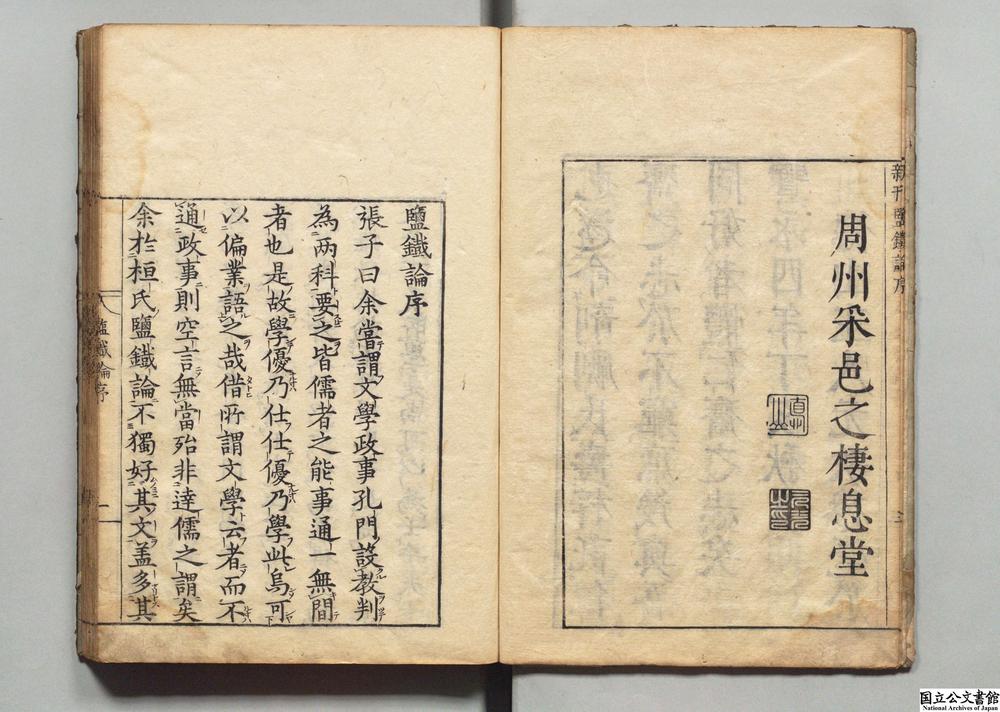 新刊鹽鐵論序
周州采邑之棲息堂
鹽鐵論序
張子曰余嘗謂文學政事孔門設教判
為两科要之皆儒者之能事通一無間
者也是故學優乃仕仕優乃學此烏可
以偏業語之哉借所謂文學云者而不
通政事則空言無當殆非達儒之謂矣
余於桓氏鹽鐵論不獨好其文盖多其
鹽鐵論序
一
国立公文書館
National Archives of Japan